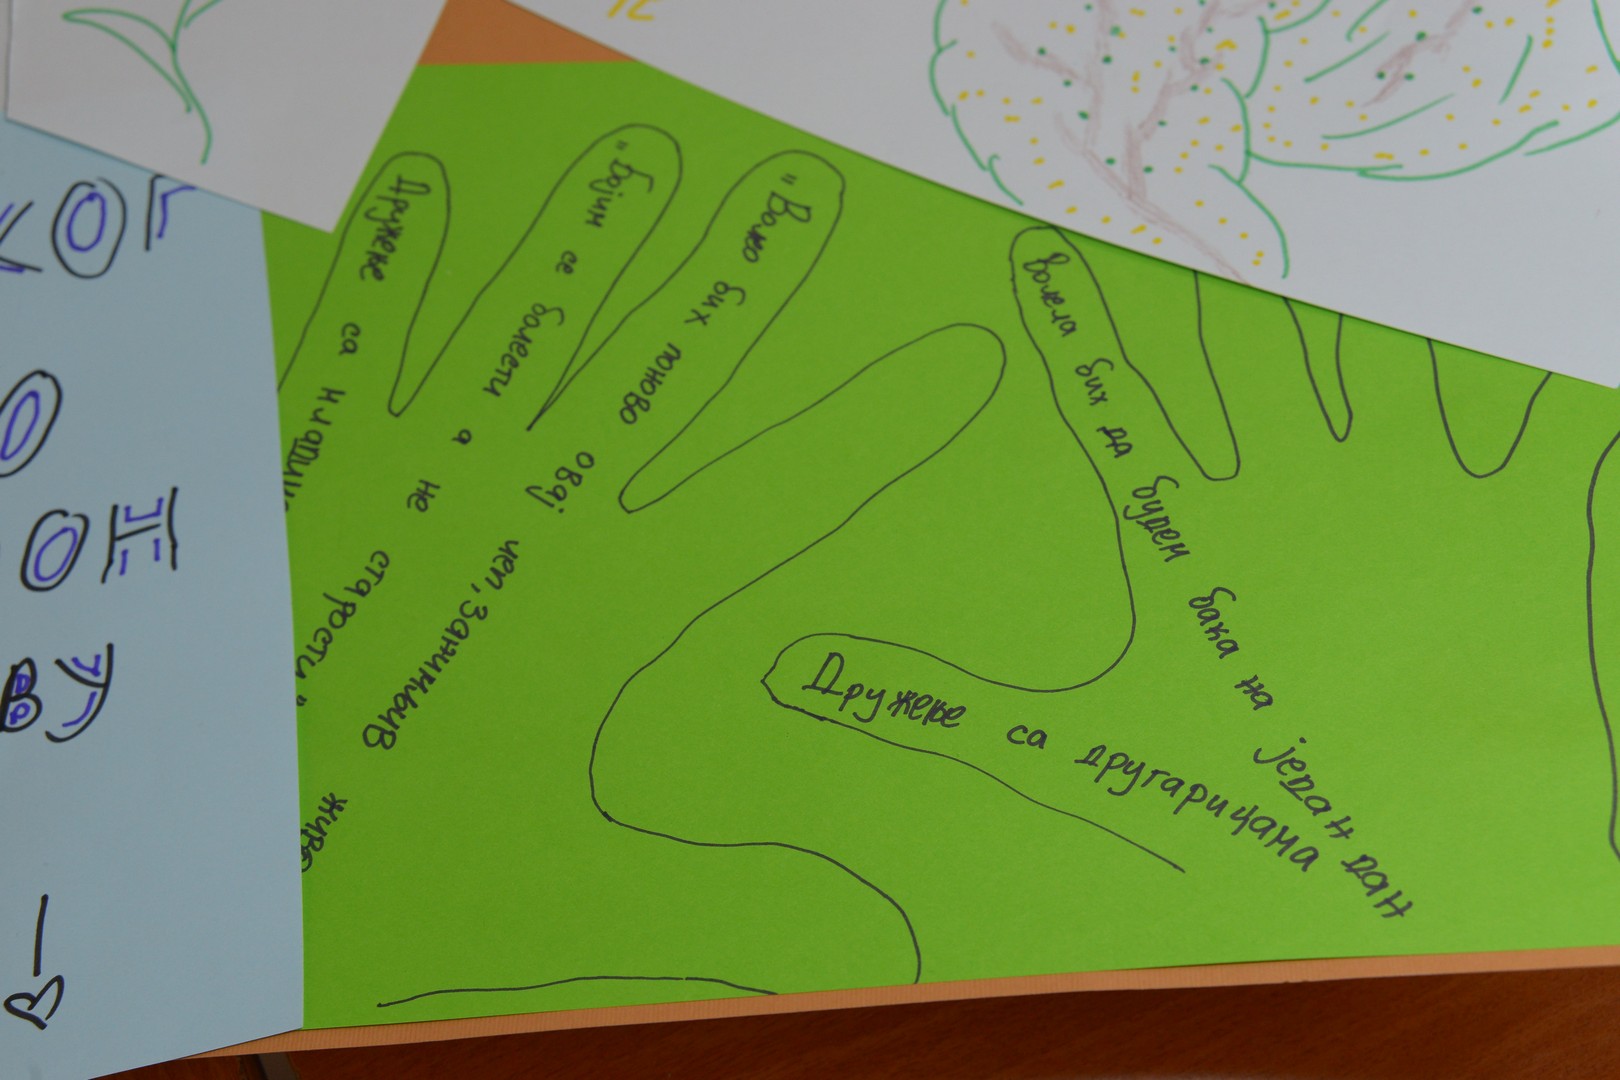 Дружење са
"Бојим се болести а не старости"
"Волео бих поново
овај леп, занимљив
Волела бих да будем бака на један дан
Дружење са другарицама
ОН
ВУ